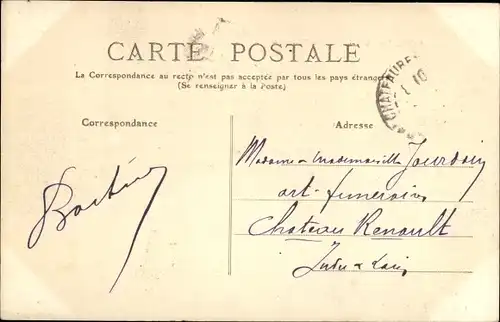 CARTE POSTALE
La Correspondance au recto n'est pas acceptée par tous les pays étrangers
(Se renseigner à la Poste)
Correspondance
Adresse
CHATEAURE
10
Madame & Mademoiselle Jourdain
art funeraire
Chateau Renault
Indre & Loire